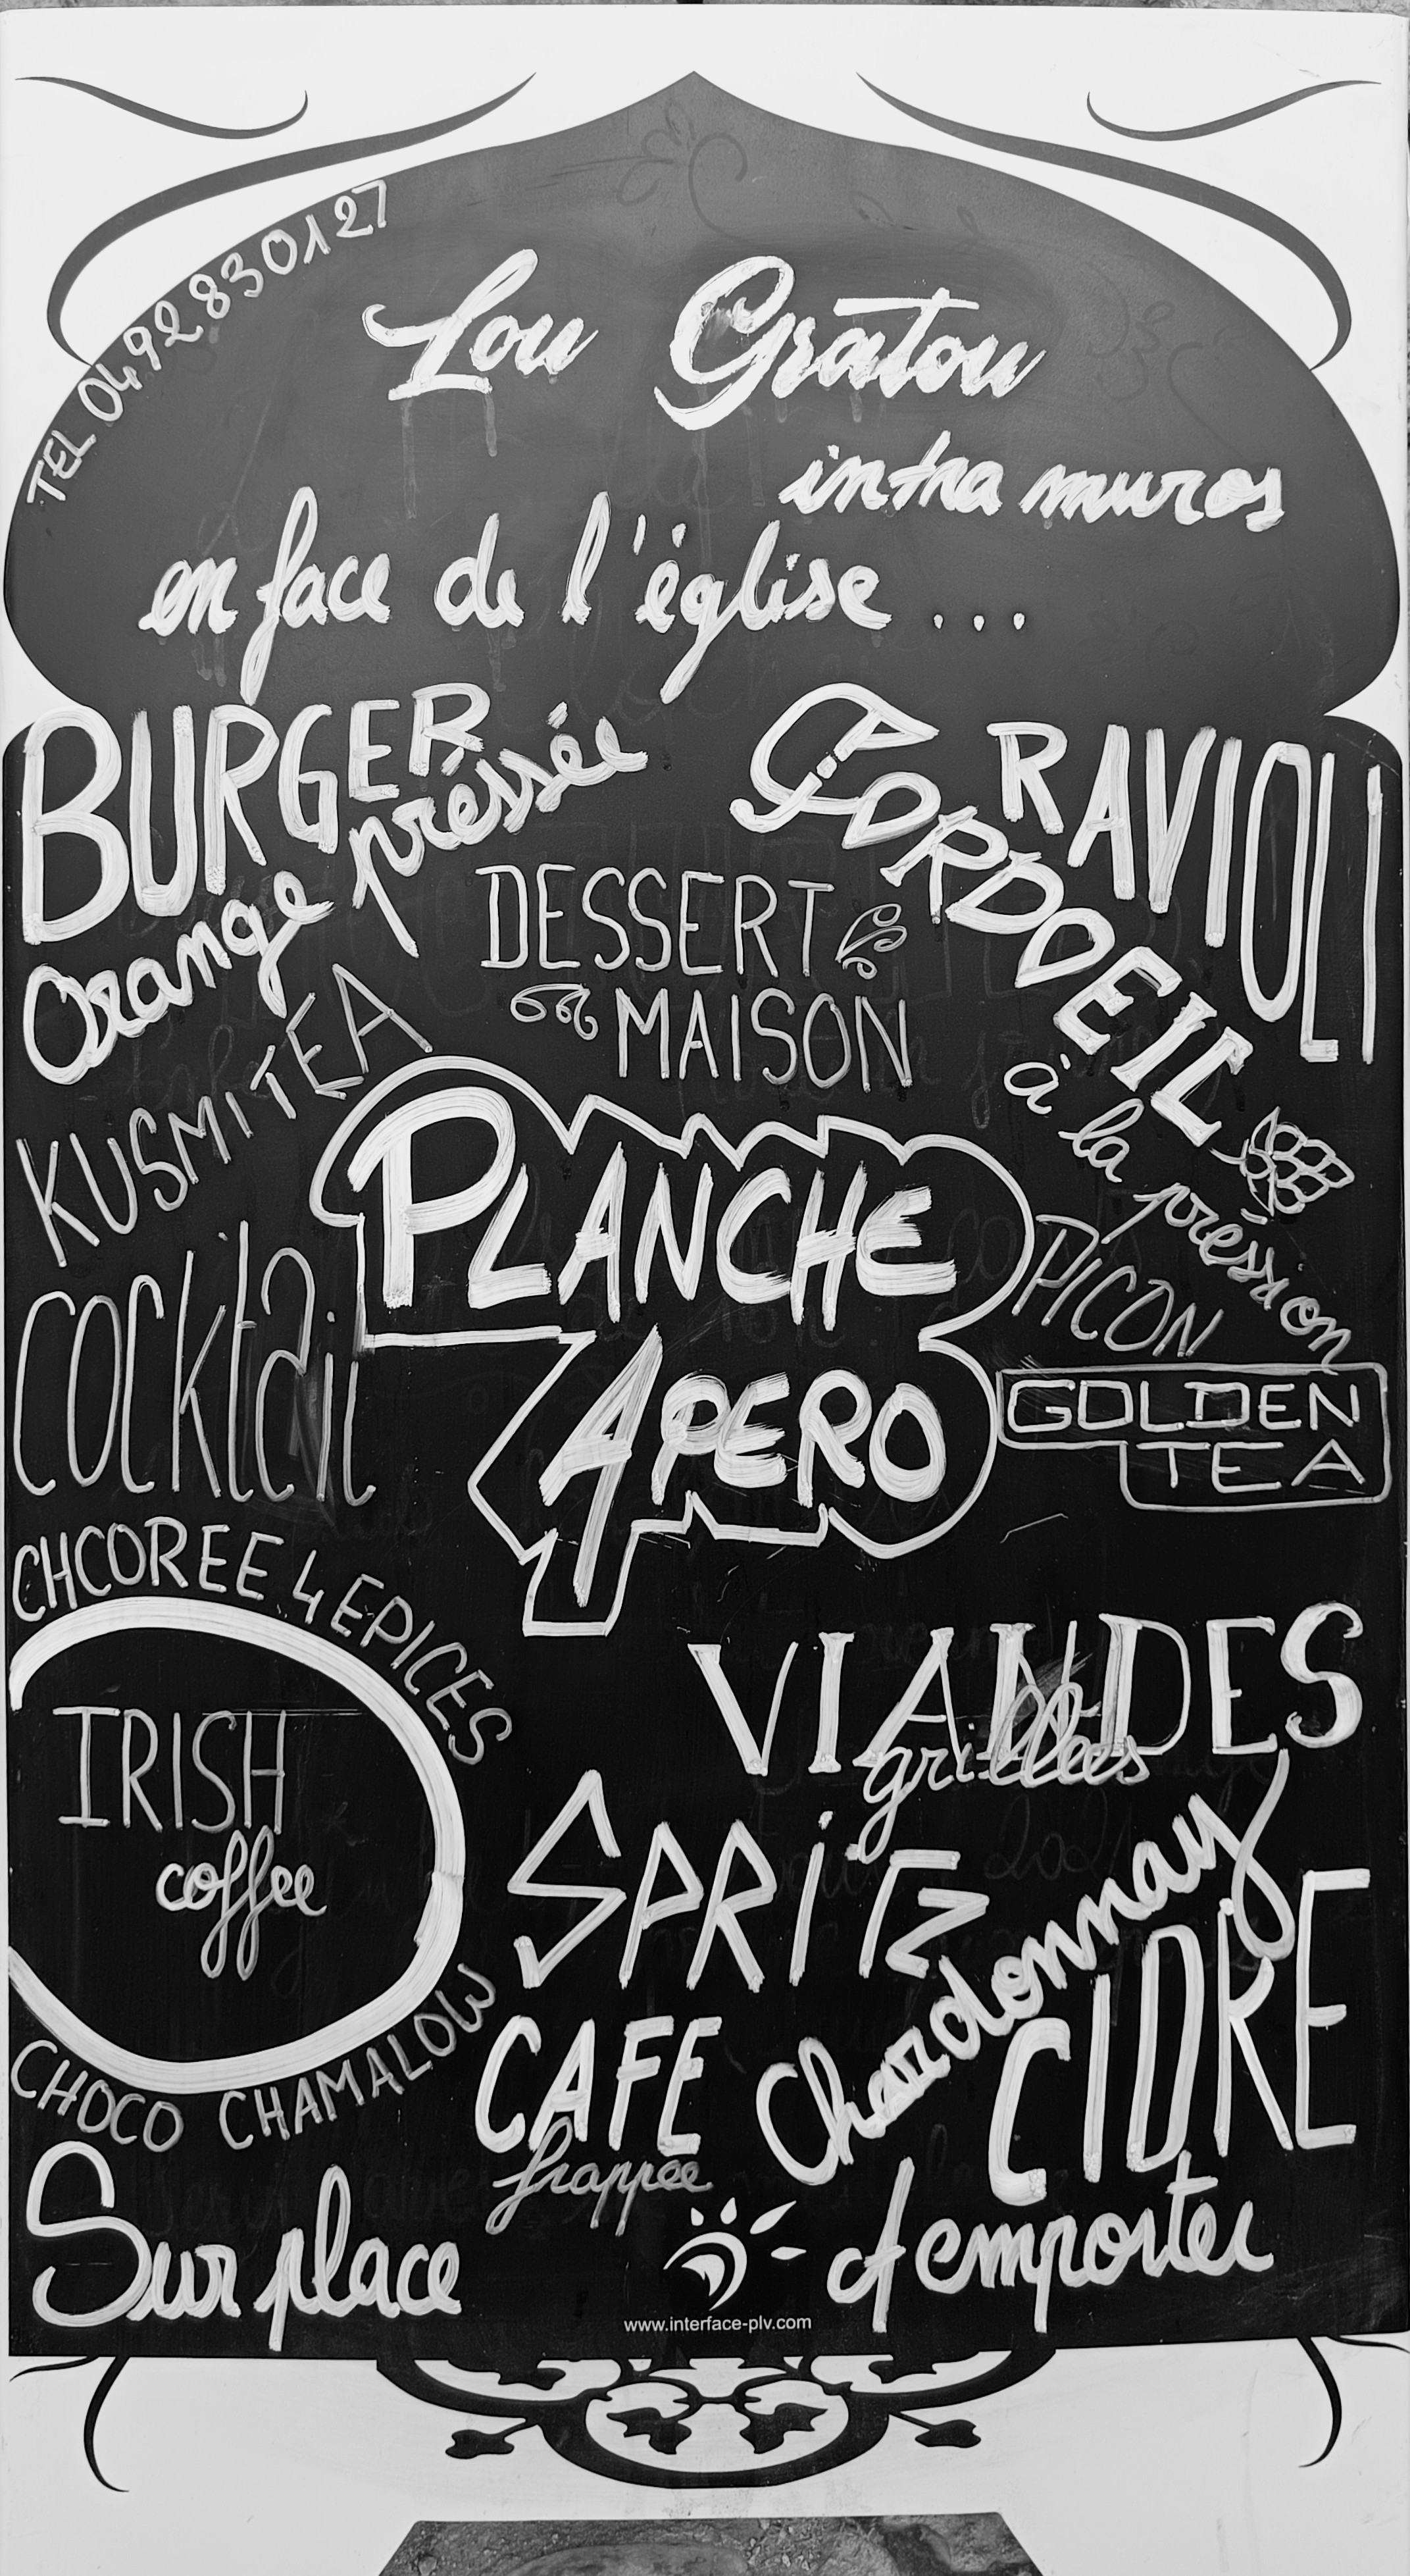 TEL 0492830127
Lou Gratou
intra muros
en face de l'église ...
BURGER
Orange préssée
CORDOEIL
à la préssion
RAVIOLI
DESSERT
MAISON
KUSMITEA
PLANCHE
APERO
PICON
COCKtail
GOLDEN
TEA
CHCOREE 4 EPICES
IRISH
coffee
VIANDES
grillées
SPRiTZ
Chardonnay
CIDRE
CHOCO CHAMALOW
CAFE
frappée
Sur place
et emporter
www.interface-plv.com